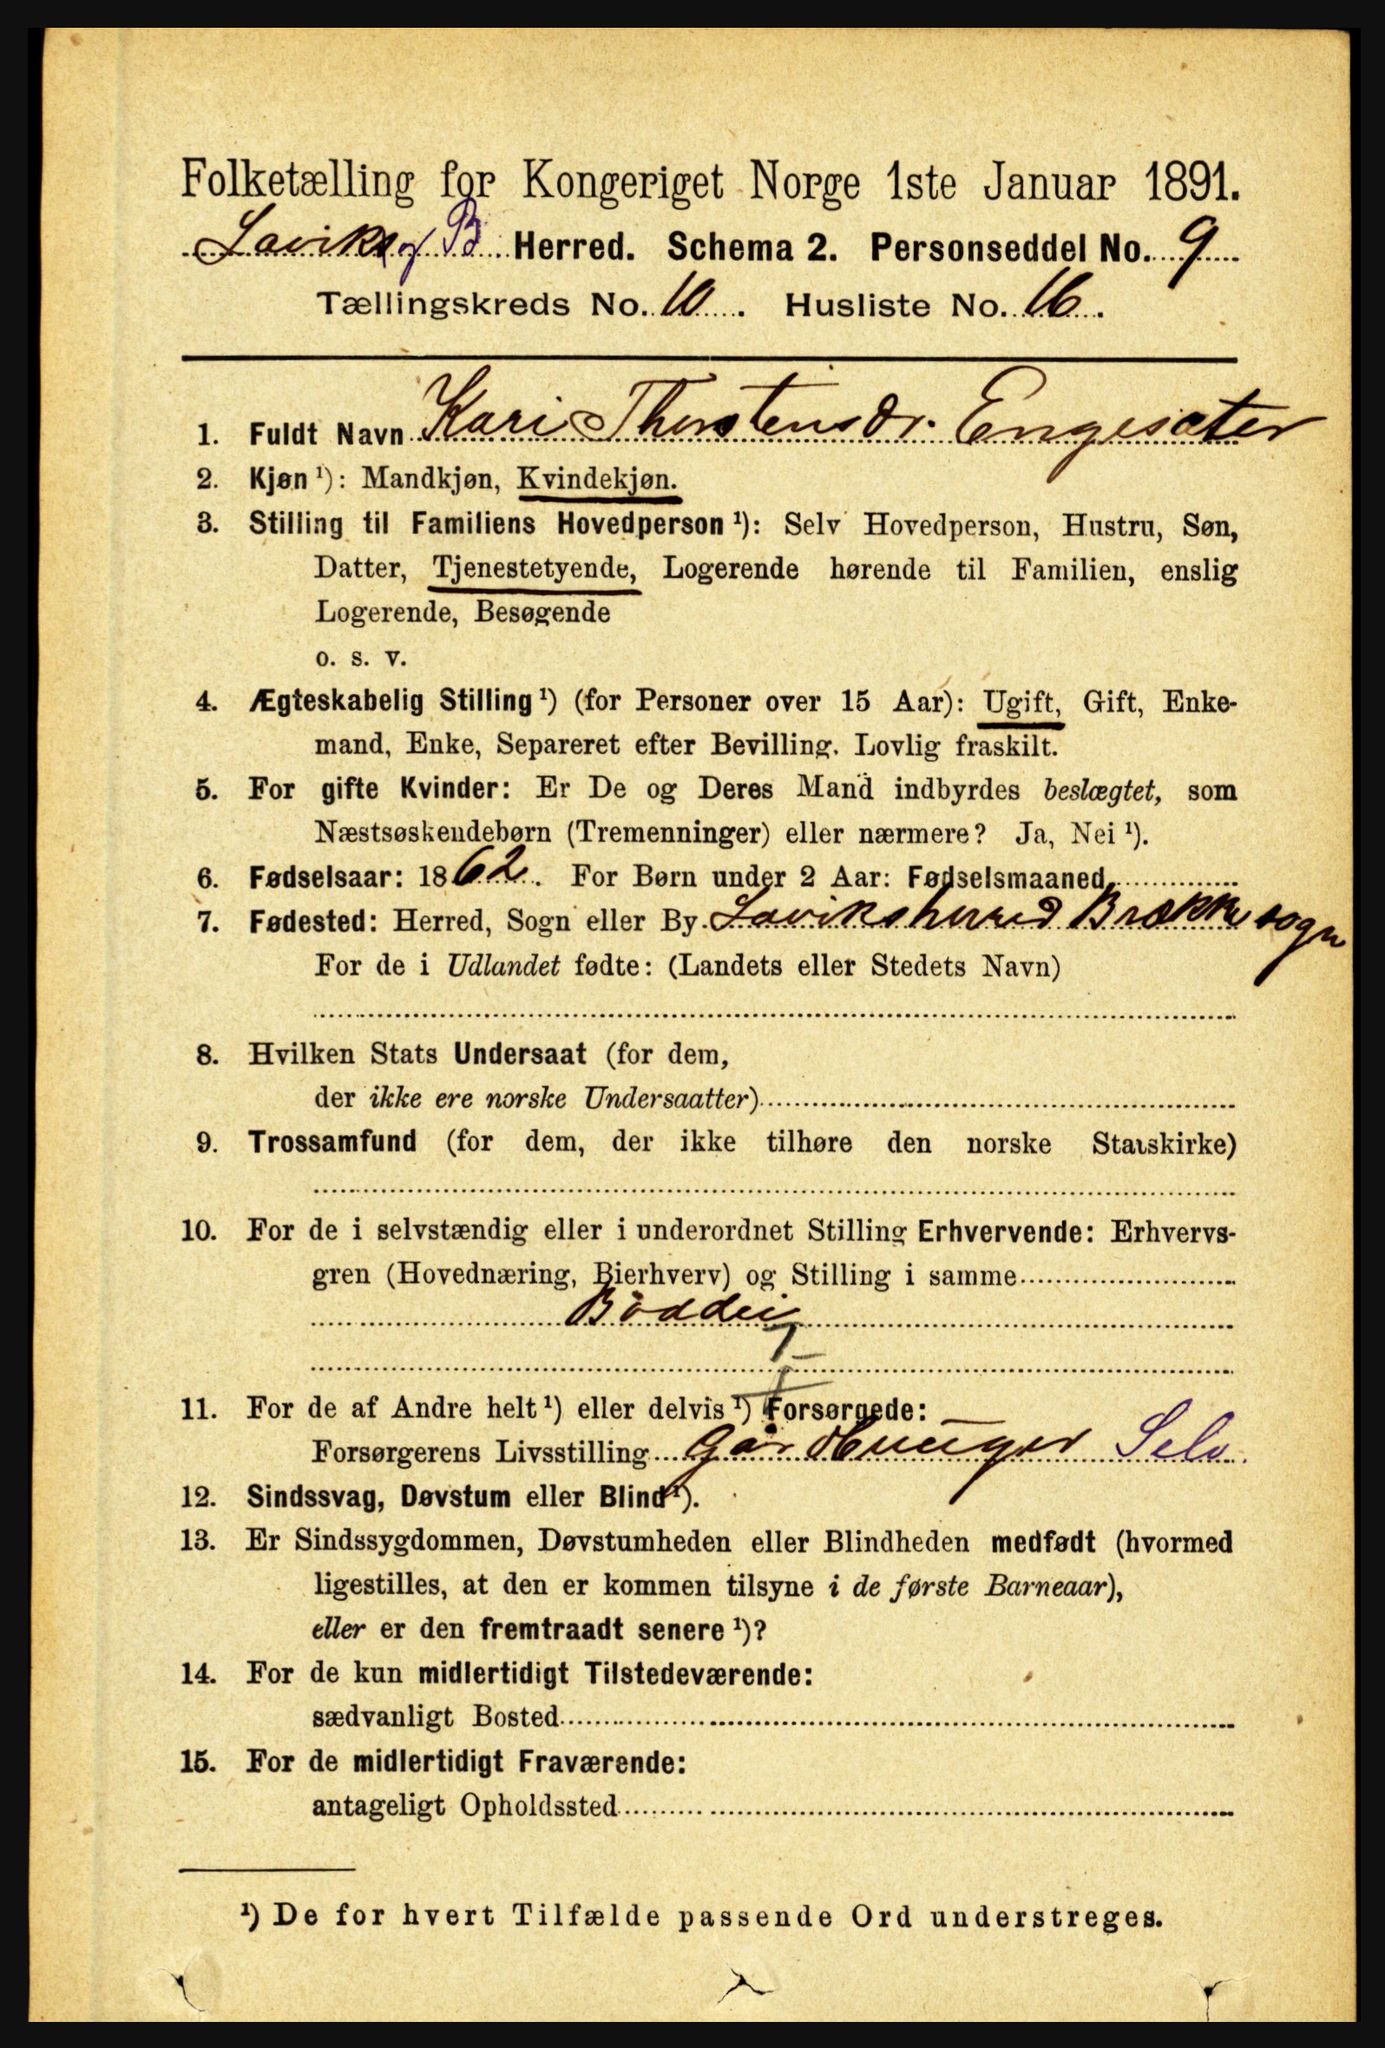 Folketælling for Kongeriget Norge 1ste Januar 1891.
Laviks og B Herred. Schema 2. Personseddel No. 9
Tællingskreds No. 10. Husliste No. 16.
1. Fuldt Navn Kari Thorstensdr. Engesæter
2. Kjøn ¹): Mandkjøn, Kvindekjøn.
3. Stilling til Familiens Hovedperson ¹): Selv Hovedperson, Hustru, Søn,
Datter, Tjenestetyende, Logerende hørende til Familien, enslig
Logerende, Besøgende
o. s. v.
4. Ægteskabelig Stilling ¹) (for Personer over 15 Aar): Ugift, Gift, Enke-
mand, Enke, Separeret efter Bevilling. Lovlig fraskilt.
5. For gifte Kvinder: Er De og Deres Mand indbyrdes beslægtet, som
Næstsøskendebørn (Tremenninger) eller nærmere? Ja, Nei ¹).
6. Fødselsaar: 1862. For Børn under 2 Aar: Fødselsmaaned
7. Fødested: Herred, Sogn eller By. Laviksherred Brække sogn
For de i Udlandet fødte: (Landets eller Stedets Navn)
8. Hvilken Stats Undersaat (for dem,
der ikke ere norske Undersaatter)
9. Trossamfund (for dem, der ikke tilhøre den norske Statskirke)
10. For de i selvstændig eller i underordnet Stilling Erhvervende: Erhvervs-
gren (Hovednæring, Bierhverv) og Stilling i samme
Böddei
11. For de af Andre helt ¹) eller delvis ¹) Forsørgede:
Forsørgerens Livsstilling Gårdbruger Selv.
12. Sindssvag, Døvstum eller Blind ¹).
13. Er Sindssygdommen, Døvstumheden eller Blindheden medfødt (hvormed
ligestilles, at den er kommen tilsyne i de første Barneaar),
eller er den fremtraadt senere ¹)?
14. For de kun midlertidigt Tilstedeværende:
sædvanligt Bosted
15. For de midlertidigt Fraværende:
antageligt Opholdssted
¹) De for hvert Tilfælde passende Ord understreges.